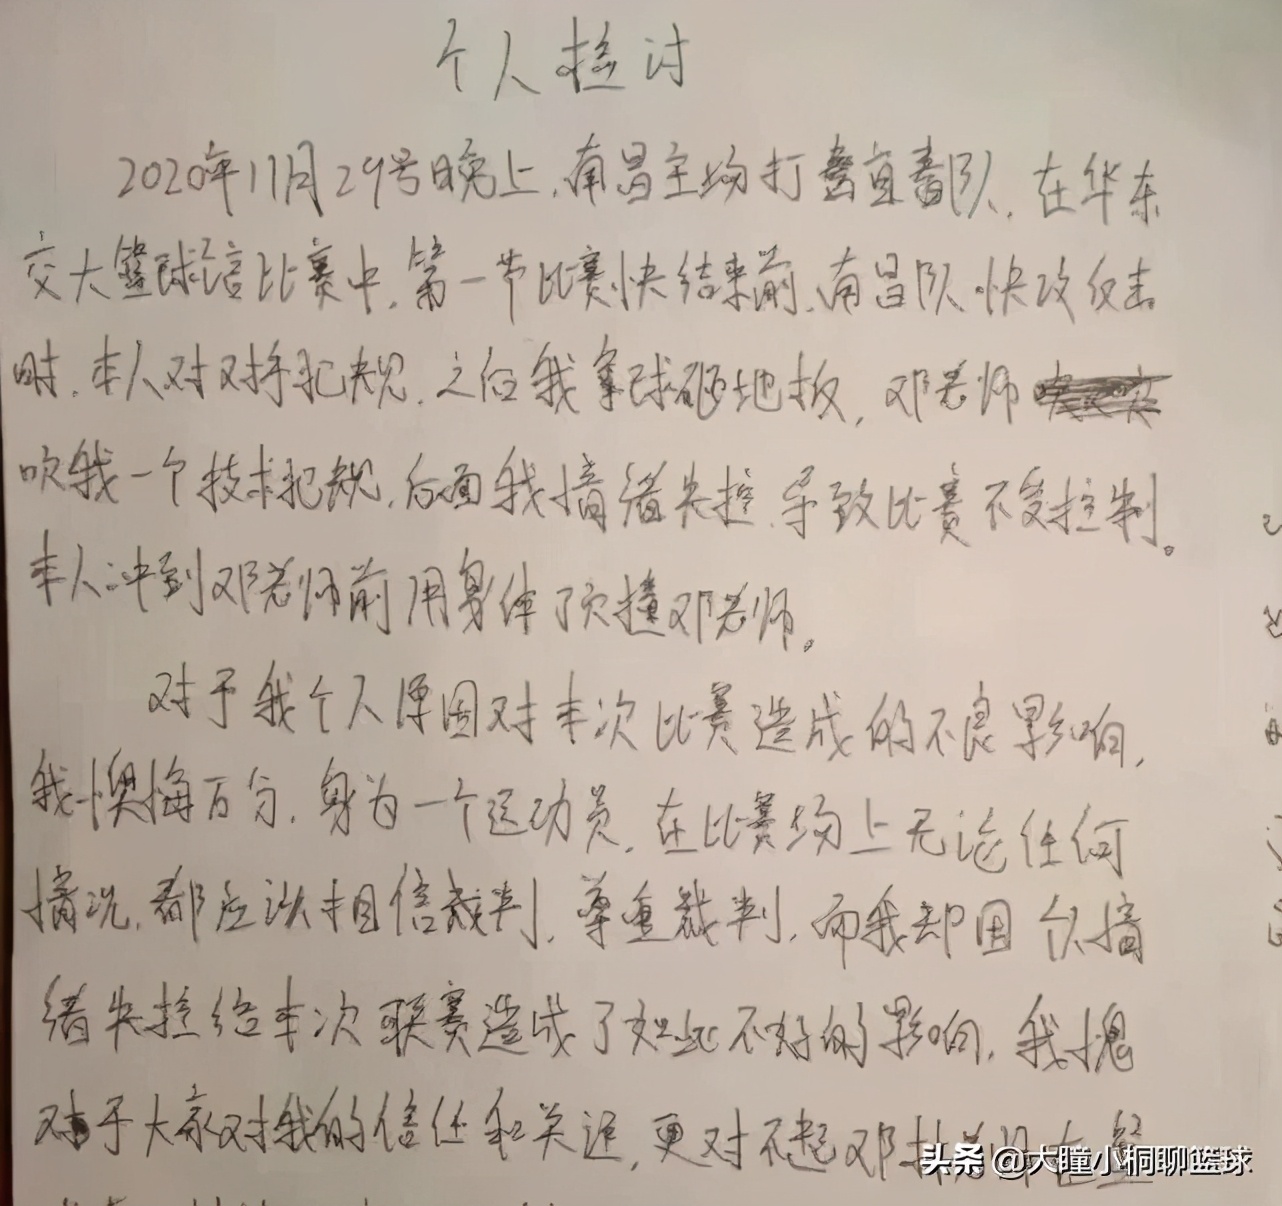 个人检讨
2020年11月29号晚上,南昌主场打宜春队,在华东
交大篮球馆比赛中,第一节比赛快结束前,南昌队快攻反击
时,本人对对手犯规,之后我拿球砸地板,邓老师
吹我一个技术犯规,后面我情绪失控,导致比赛不受控制。
本人冲到邓老师前用身体顶撞邓老师。
对于我个人原因对本次比赛造成的不良影响,
我懊悔万分,身为一个运动员,在比赛场上无论任何
情况,都应该相信裁判,尊重裁判,而我却因个人情
绪失控给本次联赛造成了如此不好的影响,我愧
对于大家对我的信任和关注,更对不起邓
头条 @大瞳小桐聊篮球